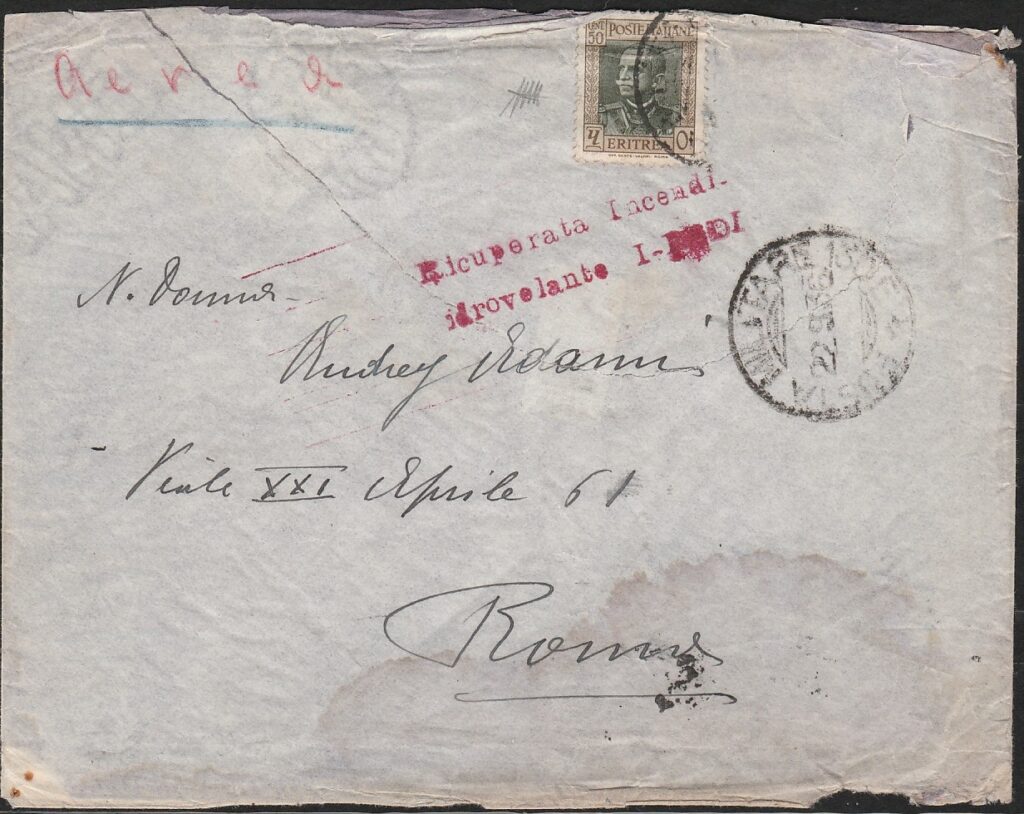 Aerea
CENT 50 POSTE ITALIANE
ERITREA
Ricuperata Incendi-
idrovelante I-
N. Donna
Audrey Adami
Viale XXI Aprile 61
Roma
POSTA MILITARE